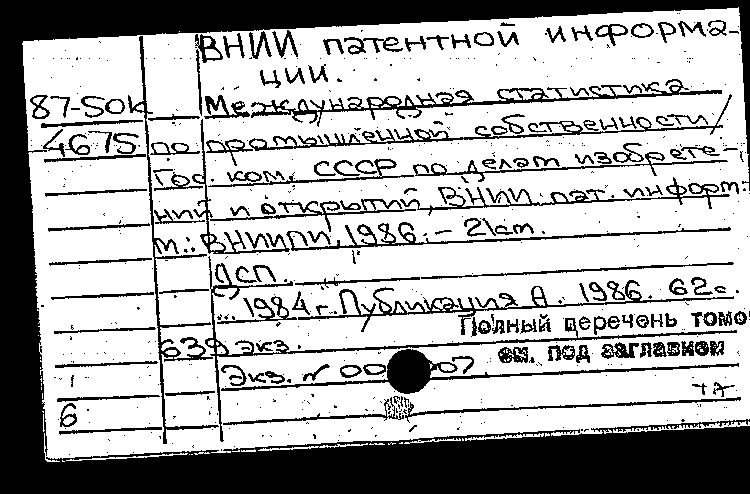 ВНИИ патентной информа-
ции.
87-50к Международная статистика
4675 по промышленной собственности/
Гос. ком. СССР по делам изобрете-
ний и открытий, ВНИИ пат. информ.
м.: ВНИИПИ, 1986. –
ДСП.
... 1984 г. Публикация А. 1986. 62с.
Полный перечень томо
639 экз.
см. под заглавием
Экз. № 00 07
6
ТА